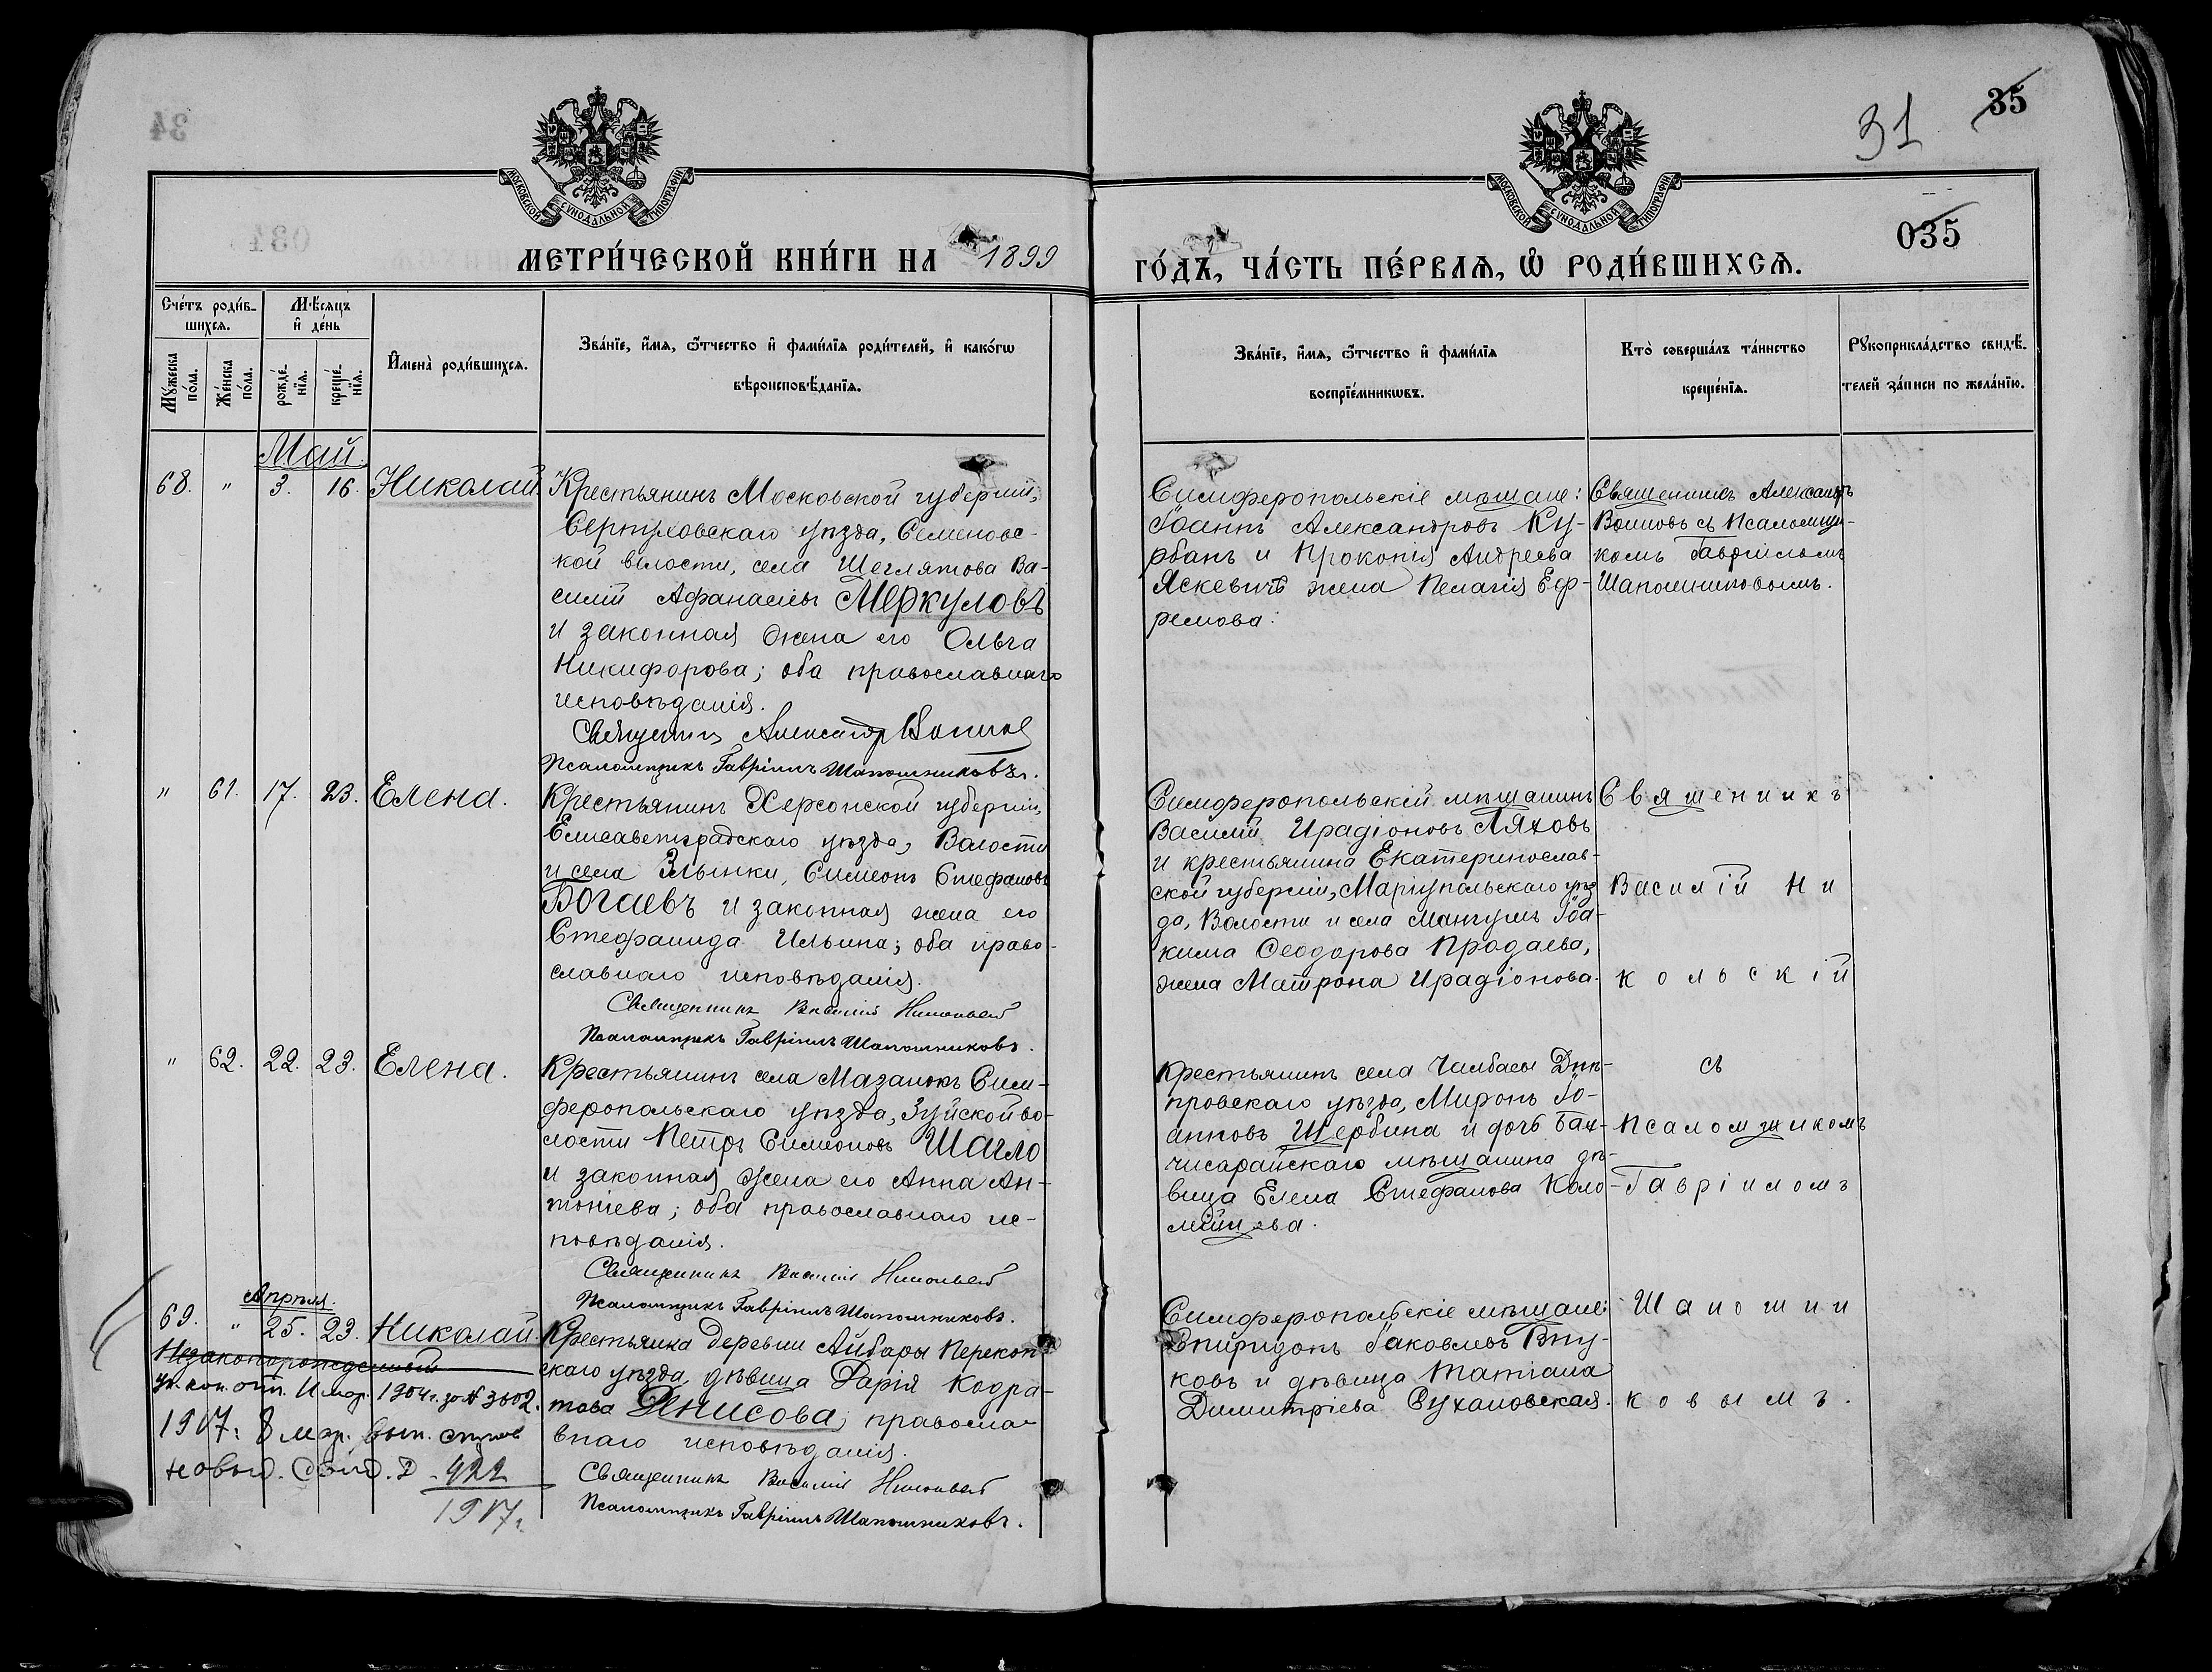 34
35
31
МОСКОВСКОЙ СУНОДАЛЬНОЙ ТИПОГРАФІИ
МОСКОВСКОЙ СУНОДАЛЬНОЙ ТИПОГРАФІИ
034
035
МЕТРИ́ЧЕСКОЙ КНИ́ГИ НА 1899
ГО́ДЪ, ЧА́СТЬ ПЕ́РВАѦ, Ѡ҆ РОДИ́ВШИХСѦ.
Сче́тъ роди́в-
шихсѧ.
Мѣ́сѧцъ
и҆ де́нь
Мꙋ́жеска
по́ла.
Же́нска
по́ла.
рожде́-
нїѧ.
креще́-
нїѧ.
И҆мена̀ роди́вшихсѧ.
Зва́нїе, и҆́мѧ, ѻ҆́тчество и҆ фами́лїѧ роди́телей, и҆ како́гѡ
вѣроисповѣ́данїѧ.
Зва́нїе, и҆́мѧ, ѻ҆́тчество и҆ фами́лїѧ
воспрїе́мникѡвъ.
Кто̀ соверша́лъ та́инство
креще́нїѧ.
Рꙋкоприкла́дство свидѣ́-
телей за́писи по жела́нїю.
Май.
68. " 3. 16. Николай.
Крестьянинъ Московской губерніи,
Серпуховскаго уѣзда, Семеновс-
кой волости, села Щеглятова Ва-
силій Афанасіевъ Меркуловъ
и законная жена его Ольга
Никифорова; оба православнаго
исповѣданія.
Священникъ Александръ
Псаломщикъ Гавріилъ Шапошниковъ.
Симферопольскіе мѣщане:
Іоаннъ Александровъ Ку-
рбанъ и Прокопія Андреева
Яскевичъ жена Пелагія Еф-
ремова.
Священникъ Александръ
Воиновъ съ Псаломщи-
комъ Гавріиломъ
Шапошниковымъ.
" 61. 17. 23. Елена.
Крестьянинъ Херсонской губерніи,
Елисаветградскаго уѣзда, Волости
и села Злынки, Симеонъ Стефановъ
Богаевъ и законная жена его
Стефанида Ильина; оба право-
славнаго исповѣданія.
Священникъ Василій Никольскій
Псаломщикъ Гавріилъ Шапошниковъ.
Симферопольскій мѣщанинъ
Василій Ирадіоновъ Ляховъ
и крестьянина Екатеринослав-
ской губерніи, Маріупольскаго уѣз
да, Волости и села Мангушъ Іоа-
кима Ѳеодорова Продаева,
жена Матрона Ирадіонова.
Священникъ
Василій Ни
кольскій
" 62. 22. 23. Елена.
Крестьянинъ села Мазанокъ Сим-
феропольскаго уѣзда, Зуйской во-
лости Петръ Симеоновъ Шагло
и законная жена его Анна Ан-
тоніева; оба православнаго ис-
повѣданія.
Священникъ Василій Никольскій
Псаломщикъ Гавріилъ Шапошниковъ.
Крестьянинъ села Чалбасы Днѣ-
провскаго уѣзда, Миронъ Іо-
анновъ Щербина и дочь Бах-
чисарайскаго мѣщанина дѣ-
вица Елена Стефанова Коло-
мійцева.
съ
Псаломщикомъ
Гавріиломъ
Апрѣля.
69. " 25. 23. Николай.
Незаконорожденный
1904 г. за № 3602.
1917 г. 8 мар. вып.
422
1917 г.
Крестьянка деревни Айбары Перекоп-
скаго уѣзда, дѣвица Дарія Кодра-
това Денисова; правосла-
внаго исповѣданія.
Священникъ Василій Никольскій
Псаломщикъ Гавріилъ Шапошниковъ.
Симферопольскіе мѣщане:
Спиридонъ Іаковлевъ Вну-
ковъ и дѣвица Татіана
Димитріева Сухановская.
Шапошни
ковымъ.